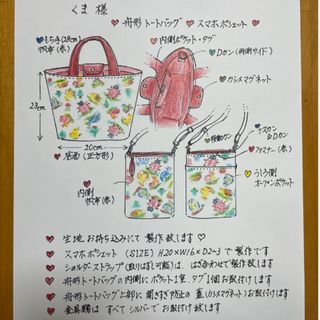 くま 様
♥ 舟形トートバッグ ♥ スマホポシェット
♥ もち手(28cm)
帆布(赤)
♥ 内側ポケット・タグ
♥ Dカン(両側サイド)
♥ カシメマグネット
23cm
20cm
♥ 底面(正方形)
♥ 移動カン
♥ ナスカン
&Dカン
♥ ファスナー(赤)
♥ うしろ側
オープンポケット
♥ 内側
帆布(赤)
♥ 生地 お持ち込みにて 製作致します♡
♥ スマホポシェット (SIZE) H20×W16×D2~3 で製作です
♥ ショルダーストラップ(取りはずし可能)は、はぎ合わせで製作致します
♥ 舟形トートバッグの内側に ポケット1箇、タグ1個お取付けします
♥ 舟形トートバッグ上部に 開きすぎ防止の 蓋(カシメマグネット)お取付けします
♥ 金具類は すべて シルバーで お取付け致します